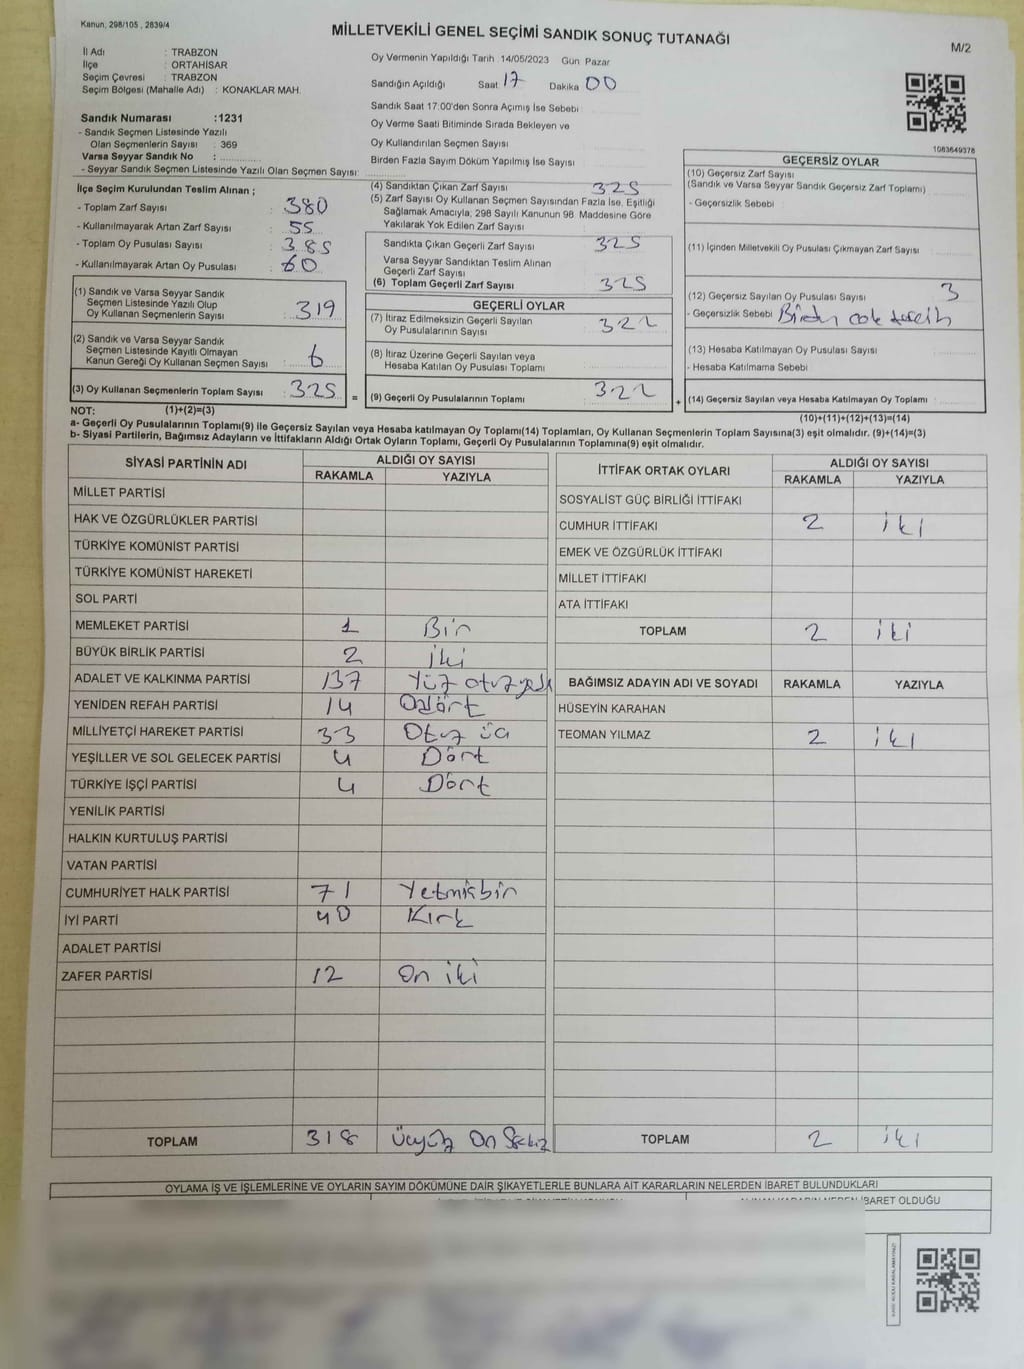 Kanun, 298/105 , 2839/4
MİLLETVEKİLİ GENEL SEÇİMİ SANDIK SONUÇ TUTANAĞI
M/2
İl Adı : TRABZON
İlçe : ORTAHİSAR
Seçim Çevresi : TRABZON
Seçim Bölgesi (Mahalle Adı) : KONAKLAR MAH.
Oy Vermenin Yapıldığı Tarih 14/05/2023 Gün Pazar
Sandığın Açıldığı Saat 17 Dakika 00
Sandık Saat 17:00'den Sonra Açımış İse Sebebi
Oy Verme Saati Bitiminde Sırada Bekleyen ve
Oy Kullandırılan Seçmen Sayısı
Birden Fazla Sayım Döküm Yapılmış İse Sayısı
Sandık Numarası :1231
- Sandık Seçmen Listesinde Yazılı
Olan Seçmenlerin Sayısı : 369
Varsa Seyyar Sandık No :
- Seyyar Sandık Seçmen Listesinde Yazılı Olan Seçmen Sayısı:
1083649378
İlçe Seçim Kurulundan Teslim Alınan ;
- Toplam Zarf Sayısı : 380
- Kullanılmayarak Artan Zarf Sayısı : 55
- Toplam Oy Pusulası Sayısı : 385
- Kullanılmayarak Artan Oy Pusulası : 60
(1) Sandık ve Varsa Seyyar Sandık
Seçmen Listesinde Yazılı Olup
Oy Kullanan Seçmenlerin Sayısı : 319
(2) Sandık ve Varsa Seyyar Sandık
Seçmen Listesinde Kayıtlı Olmayan
Kanun Gereği Oy Kullanan Seçmen Sayısı : 6
(3) Oy Kullanan Seçmenlerin Toplam Sayısı : 325 =
(4) Sandıktan Çıkan Zarf Sayısı 325
(5) Zarf Sayısı Oy Kullanan Seçmen Sayısından Fazla İse, Eşitliği
Sağlamak Amacıyla; 298 Sayılı Kanunun 98. Maddesine Göre
Yakılarak Yok Edilen Zarf Sayısı
Sandıkta Çıkan Geçerli Zarf Sayısı 325
Varsa Seyyar Sandıktan Teslim Alınan
Geçerli Zarf Sayısı
(6) Toplam Geçerli Zarf Sayısı 325
GEÇERLİ OYLAR
(7) İtiraz Edilmeksizin Geçerli Sayılan
Oy Pusulalarının Sayısı : 322
(8) İtiraz Üzerine Geçerli Sayılan veya
Hesaba Katılan Oy Pusulası Toplamı
(9) Geçerli Oy Pusulalarının Toplamı : 322 +
GEÇERSİZ OYLAR
(10) Geçersiz Zarf Sayısı
(Sandık ve Varsa Seyyar Sandık Geçersiz Zarf Toplamı)
- Geçersizlik Sebebi
(11) İçinden Milletvekili Oy Pusulası Çıkmayan Zarf Sayısı
(12) Geçersiz Sayılan Oy Pusulası Sayısı 3
- Geçersizlik Sebebi Birden çok tercih
(13) Hesaba Katılmayan Oy Pusulası Sayısı
- Hesaba Katılmama Sebebi
(14) Geçersiz Sayılan veya Hesaba Katılmayan Oy Toplamı
NOT: (1)+(2)=(3)
(10)+(11)+(12)+(13)=(14)
a- Geçerli Oy Pusulalarının Toplamı(9) ile Geçersiz Sayılan veya Hesaba katılmayan Oy Toplamı(14) Toplamları, Oy Kullanan Seçmenlerin Toplam Sayısına(3) eşit olmalıdır. (9)+(14)=(3)
b- Siyasi Partilerin, Bağımsız Adayların ve İttifakların Aldığı Ortak Oyların Toplamı, Geçerli Oy Pusulalarının Toplamına(9) eşit olmalıdır.
SİYASİ PARTİNİN ADI ALDIĞI OY SAYISI
RAKAMLA YAZIYLA
MİLLET PARTİSİ
HAK VE ÖZGÜRLÜKLER PARTİSİ
TÜRKİYE KOMÜNİST PARTİSİ
TÜRKİYE KOMÜNİST HAREKETİ
SOL PARTİ
MEMLEKET PARTİSİ 1 Bir
BÜYÜK BİRLİK PARTİSİ 2 iki
ADALET VE KALKINMA PARTİSİ 137 Yüz otuz yedi
YENİDEN REFAH PARTİSİ 14 Ondört
MİLLİYETÇİ HAREKET PARTİSİ 33 Otuz üç
YEŞİLLER VE SOL GELECEK PARTİSİ 4 Dört
TÜRKİYE İŞÇİ PARTİSİ 4 Dört
YENİLİK PARTİSİ
HALKIN KURTULUŞ PARTİSİ
VATAN PARTİSİ
CUMHURİYET HALK PARTİSİ 71 Yetmişbir
İYİ PARTİ 40 Kırk
ADALET PARTİSİ
ZAFER PARTİSİ 12 On iki
TOPLAM 318 Üçyüz On Sekiz
İTTİFAK ORTAK OYLARI ALDIĞI OY SAYISI
RAKAMLA YAZIYLA
SOSYALİST GÜÇ BİRLİĞİ İTTİFAKI
CUMHUR İTTİFAKI 2 iki
EMEK VE ÖZGÜRLÜK İTTİFAKI
MİLLET İTTİFAKI
ATA İTTİFAKI
TOPLAM 2 iki
BAĞIMSIZ ADAYIN ADI VE SOYADI RAKAMLA YAZIYLA
HÜSEYİN KARAHAN
TEOMAN YILMAZ 2 iki
TOPLAM 2 iki
OYLAMA İŞ VE İŞLEMLERİNE VE OYLARIN SAYIM DÖKÜMÜNE DAİR ŞİKAYETLERLE BUNLARA AİT KARARLARIN NELERDEN İBARET BULUNDUKLARI
İBARET OLDUĞU